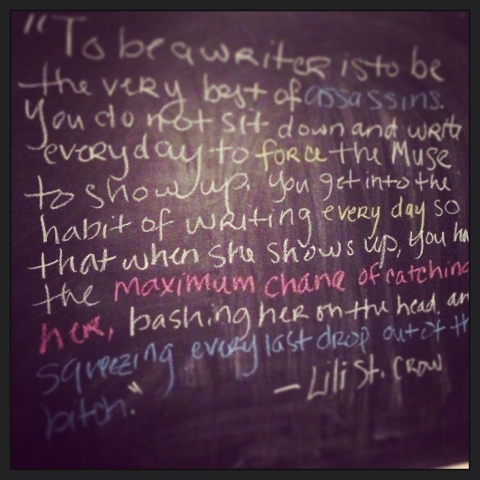 "To be a writer is to be
the very best of assassins.
You do not sit down and write
every day to force the Muse
to show up. You get into the
habit of writing every day so
that when she shows up, you ha
the maximum chanc of catching
her, bashing her on the head, an
squeezing every last drop out of th
bitch."
— Lili St. Crow